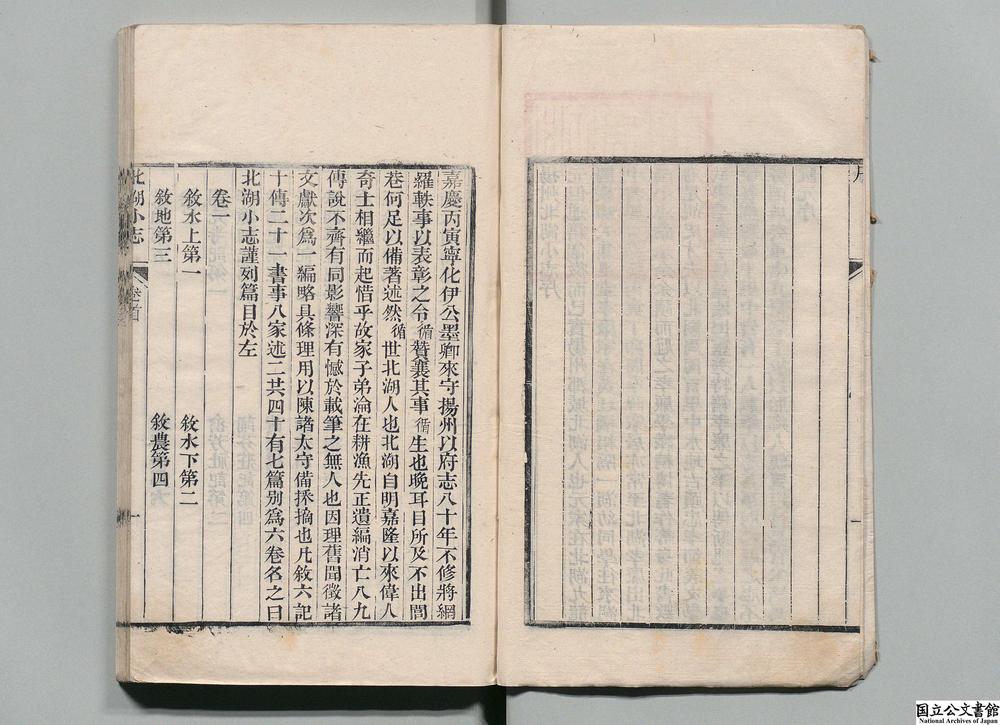 嘉慶丙寅寧化伊公墨卿來守揚州以府志八十年不修將網
羅軼事以表彰之令循贊襄其事循生也晚耳目所及不出閭
巷何足以備著述然循世北湖人也北湖自明嘉隆以來偉人
奇士相繼而起惜乎故家子弟淪在耕漁先正遺編消亡八九
傳說不齊有同影響深有憾於載筆之無人也因理舊聞徵諸
文獻次爲一編略具條理用以陳諸太守備採擿也凡敘六記
十傳二十一書事八家述二共四十有七篇別爲六卷名之曰
北湖小志謹列篇目於左
卷一
敘水上第一 敘水下第二
敘地第三 敘農第四
北湖小志 卷首 一
国立公文書館
National Archives of Japan